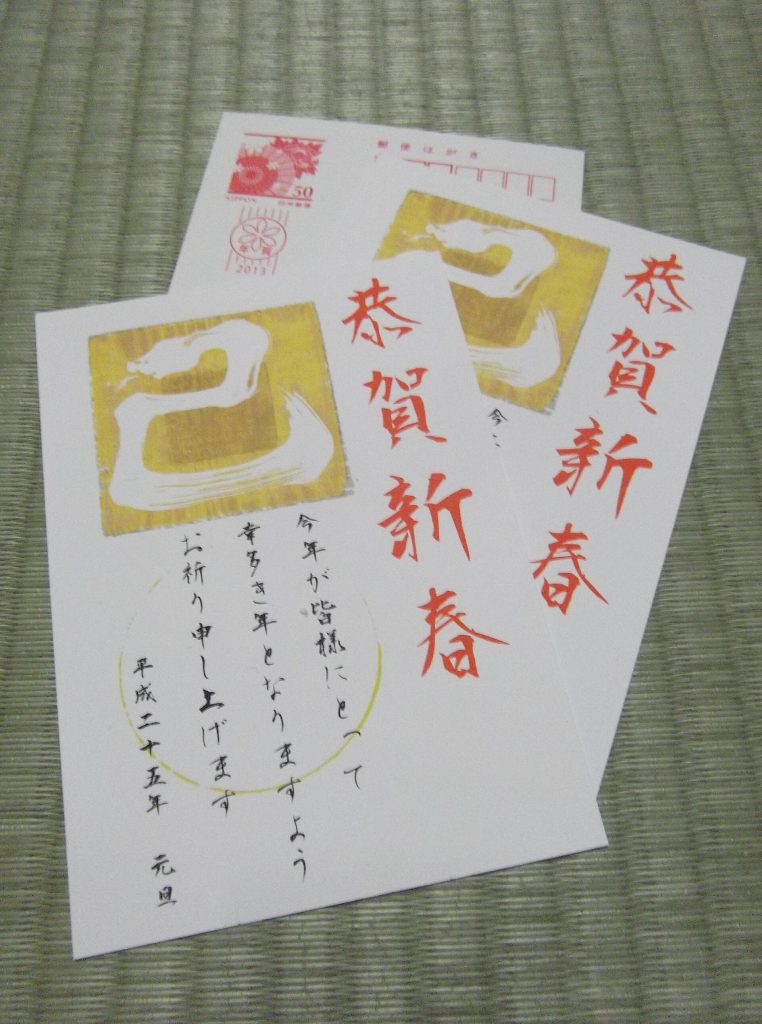 恭賀新春
今年が皆様にとって
幸多き年となりますよう
お祈り申し上げます
平成二十五年 元旦
巳
恭賀新春
今
巳
郵便はがき
50
NIPPON 日本郵便
年賀
2013